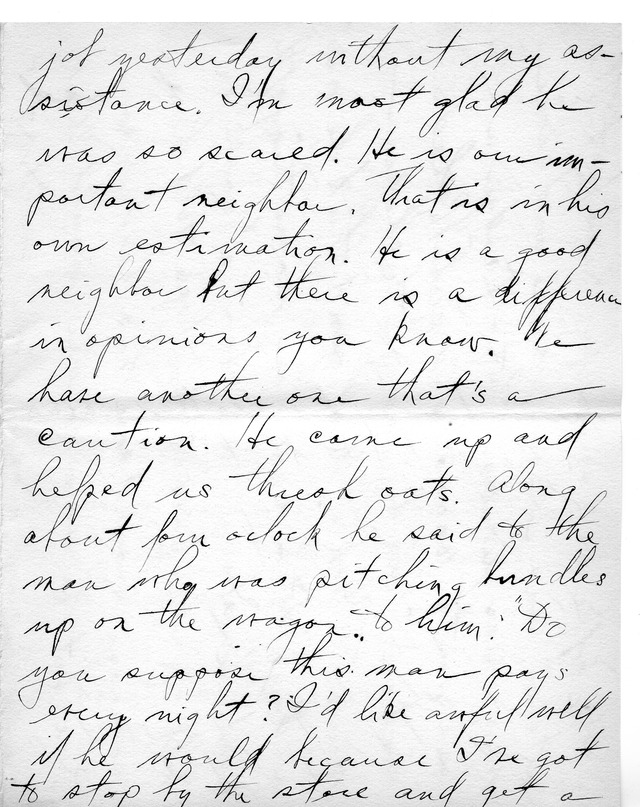 job yesterday without my as-
sistance. I'm most glad he
was so scared. He is our im-
portant neighbor. That is in his
own estimation. He is a good
neighbor but there is a difference
in opinions you know. We
have another one that's a
caution. He came up and
helped us thresh oats. Along
about four oclock he said to the
man who was pitching bundles
up on the wagon to him: "Do
you suppose this man pays
every night? I'd like awful well
if he would because I've got
to stop by the store and get a